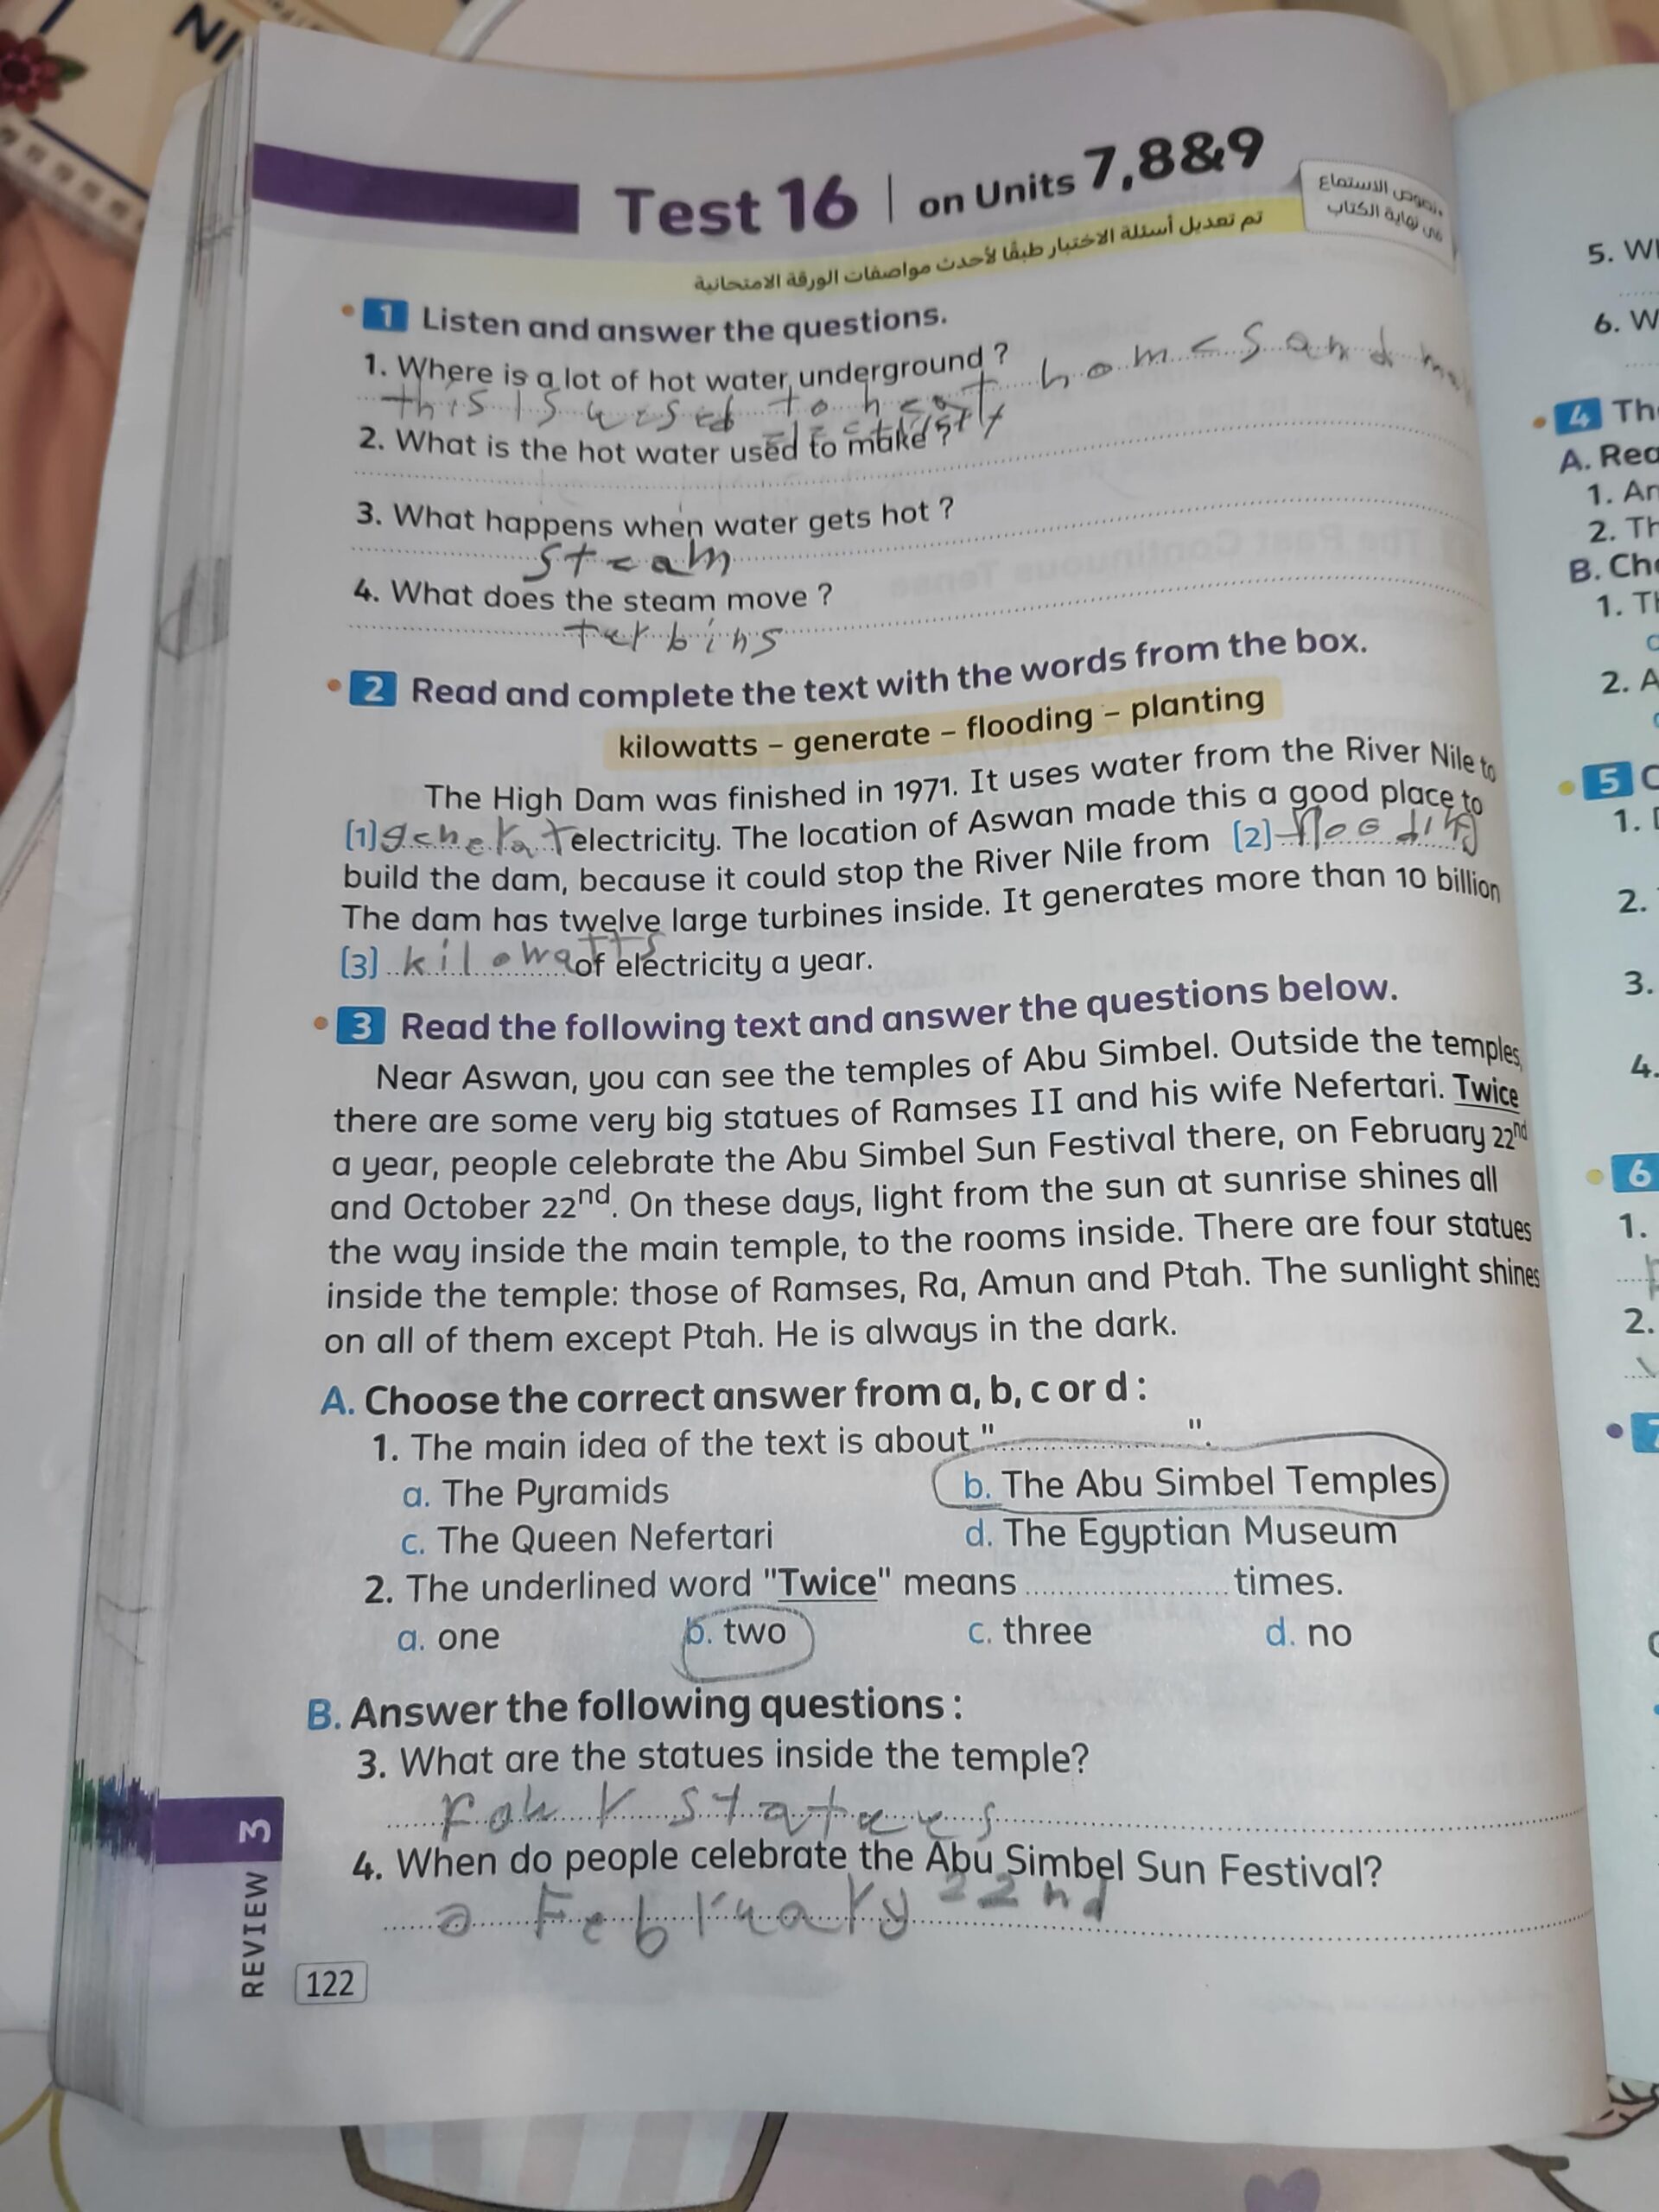 Test 16 | on Units 7,8&9
نصوص الاستماع
فى نهاية الكتاب
تم تعديل أسئلة الاختبار طبقًا لأحدث مواصفات الورقة الامتحانية
1 Listen and answer the questions.
1. Where is a lot of hot water underground ?
this is used to heat homes and
electricity
2. What is the hot water used to make ?
3. What happens when water gets hot ?
steam
4. What does the steam move ?
terbins
2 Read and complete the text with the words from the box.
kilowatts – generate – flooding – planting
The High Dam was finished in 1971. It uses water from the River Nile to
(1) generat electricity. The location of Aswan made this a good place to
build the dam, because it could stop the River Nile from (2) flooding
The dam has twelve large turbines inside. It generates more than 10 billion
(3) kilowatts of electricity a year.
3 Read the following text and answer the questions below.
Near Aswan, you can see the temples of Abu Simbel. Outside the temples,
there are some very big statues of Ramses II and his wife Nefertari. Twice
a year, people celebrate the Abu Simbel Sun Festival there, on February 22nd
and October 22nd. On these days, light from the sun at sunrise shines all
the way inside the main temple, to the rooms inside. There are four statues
inside the temple: those of Ramses, Ra, Amun and Ptah. The sunlight shines
on all of them except Ptah. He is always in the dark.
A. Choose the correct answer from a, b, c or d :
1. The main idea of the text is about "....................".
a. The Pyramids b. The Abu Simbel Temples
c. The Queen Nefertari d. The Egyptian Museum
2. The underlined word "Twice" means .................... times.
a. one b. two c. three d. no
B. Answer the following questions :
3. What are the statues inside the temple?
four statues
4. When do people celebrate the Abu Simbel Sun Festival?
February 22nd
REVIEW 3
122
5.
6.
4
A.
1.
2.
B.
1.
2. A
5
1.
2.
3.
4.
6
1.
2.